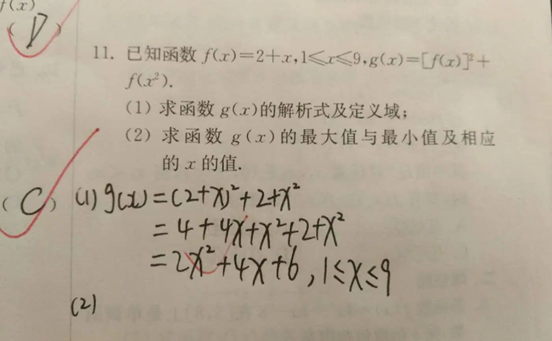 f(x)
(D)
11. 已知函数 f(x)=2+x,1≤x≤9,g(x)=[f(x)]²+
f(x²).
(1) 求函数 g(x)的解析式及定义域;
(2) 求函数 g(x)的最大值与最小值及相应
的 x 的值.
(C)
(1) g(x)=(2+x)²+2+x²
=4+4x+x²+2+x²
=2x²+4x+6,1≤x≤9
(2)